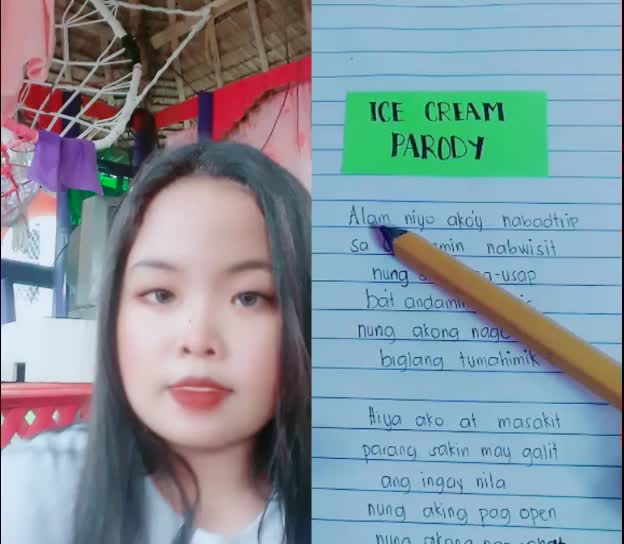 ICE CREAM
PARODY
Alam niyo ako'y nabadtrip
sa nabwisit
nung
bat
nung akong
biglang tumahimik
Hiya ako at masakit
parang sakin may galit
ang ingay nila
nung aking pag open
nung akong